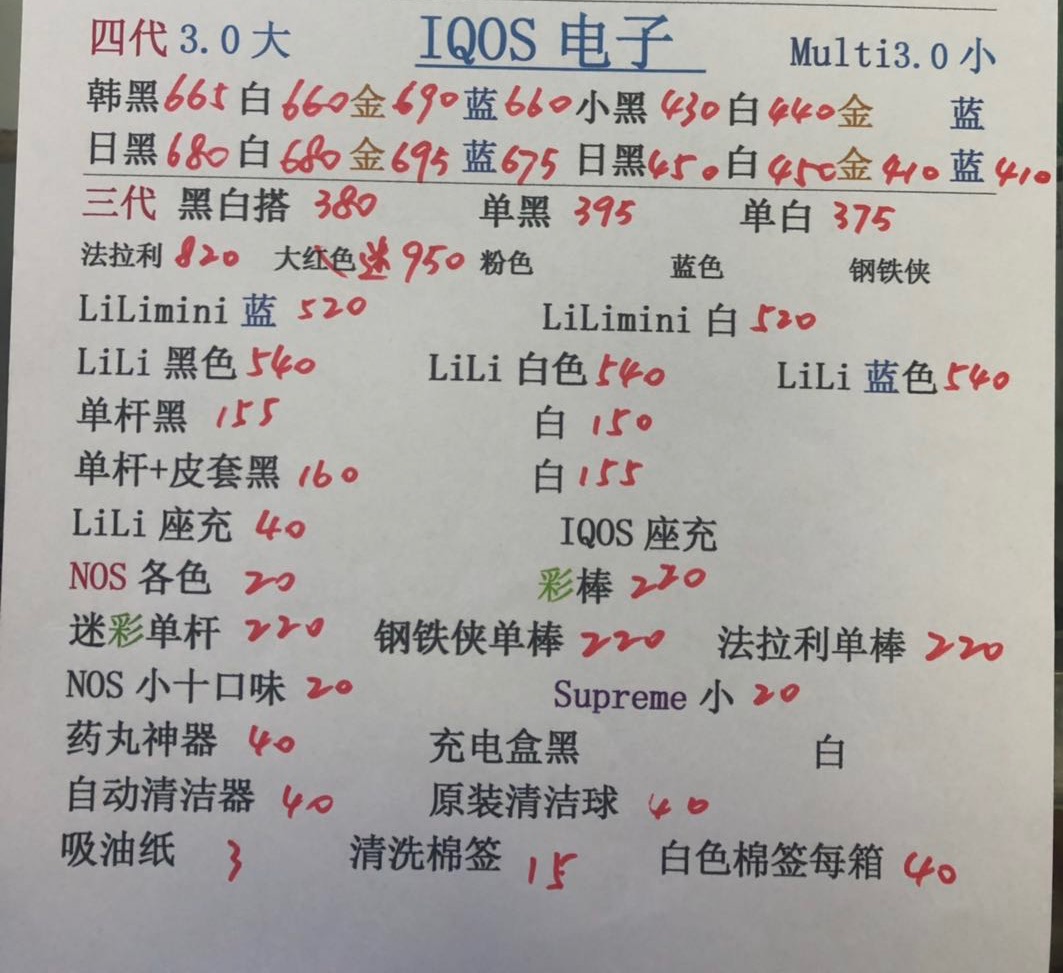 四代 3.0 大 IQOS 电子 Multi3.0 小
韩黑 665 白 660 金 690 蓝 660 小黑 430 白 440 金 蓝
日黑 680 白 680 金 695 蓝 675 日黑 450 白 450 金 410 蓝 410
三代 黑白搭 380 单黑 395 单白 375
法拉利 820 大红色 迷 950 粉色 蓝色 钢铁侠
LiLimini 蓝 520 LiLimini 白 520
LiLi 黑色 540 LiLi 白色 540 LiLi 蓝色 540
单杆黑 155 白 150
单杆+皮套黑 160 白 155
LiLi 座充 40 IQOS 座充
NOS 各色 20 彩棒 220
迷彩单杆 220 钢铁侠单棒 220 法拉利单棒 220
NOS 小十口味 20 Supreme 小 20
药丸神器 40 充电盒黑 白
自动清洁器 40 原装清洁球 40
吸油纸 3 清洗棉签 15 白色棉签每箱 40